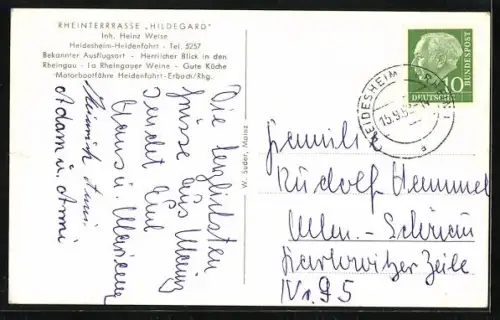 RHEINTERRRASSE „HILDEGARD"
Inh. Heinz Weise
Heidesheim-Heidenfahrt - Tel. 5257
Bekannter Ausflugsort - Herrlicher Blick in den
Rheingau - la Rheingauer Weine - Gute Küche
Motorbootfähre Heidenfahrt-Erbach/Rhg.
Die herzlichsten
Grüsse aus Mainz
sendet Euch
Hans u. Marianne
Heinrich Anni
Adam u. Anni
W. Suder, Mainz
HEIDESHEIM
15.9.5
a
10
DEUTSCHE
BUNDESPOST
Familie
Rudolf Hemmel
Ulm-
Karlowitzer Zeile
Nr. 95